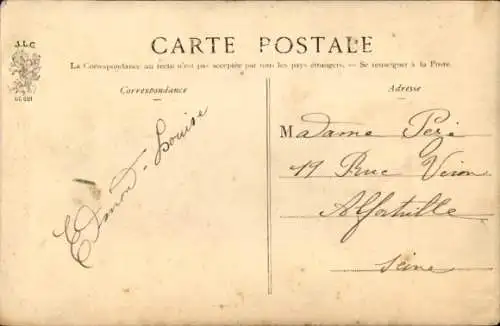 J.L.C
CARTE POSTALE
La Correspondance au recto n'est pas acceptée par tous les pays étrangers. — Se renseigner à la Poste.
Correspondance
Edmond - Louise
Adresse
Madame
19 Rue Véron
Alfortville
Seine